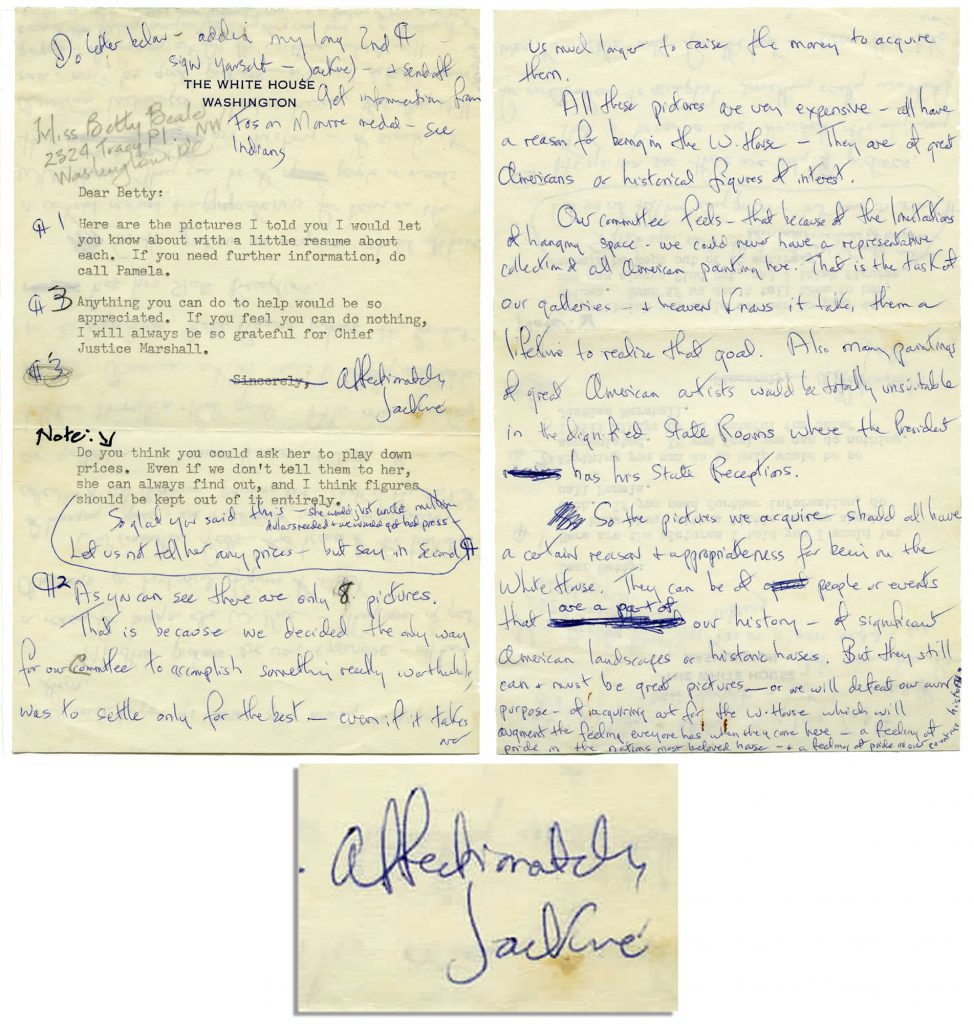 Do letter below - adding my long 2nd ¶ -
sign yourself - (Jackie) - + send off
THE WHITE HOUSE
WASHINGTON
Get information from
Fos on Monroe medal - see
Indians
Miss Betty Beale
2324 Tracy Pl. NW
Washington, DC
Dear Betty:
¶ 1 Here are the pictures I told you I would let
you know about with a little resume about
each. If you need further information, do
call Pamela.
¶ 3 Anything you can do to help would be so
appreciated. If you feel you can do nothing,
I will always be so grateful for Chief
Justice Marshall.
¶ 3
Sincerely, Affectionately
Jackie
Note:
Do you think you could ask her to play down
prices. Even if we don't tell them to her,
she can always find out, and I think figures
should be kept out of it entirely.
So glad you said this - she would just write million
dollars needed + we would get bad press -
Let us not tell her any prices - but say in second ¶
¶2 As you can see there are only 8 pictures.
That is because we decided the only way
for our Committee to accomplish something really worthwhile,
was to settle only for the best - even if it takes
us much longer to raise the money to acquire
them.
All these pictures are very expensive - all have
a reason for being in the W. House - They are of great
Americans or historical figures of interest.
Our committee feels - that because of the limitations
of hanging space - we could never have a representative
collection of all American painting here. That is the task of
our galleries - + heaven knows it takes them a
lifetime to realize that goal. Also many paintings
of great American artists would be totally unsuitable
in the dignified State Rooms where the President
has his State Receptions.
So the pictures we acquire should all have
a certain reason + appropriateness for being in the
White House. They can be of people or events
that are a part of our history - of significant
American landscapes or historic houses. But they still
can + must be great pictures - or we will defeat our own
purpose - of acquiring art for the W. House which will
augment the feeling everyone has when they come here - a feeling of
pride in the nations most beloved house - + a feeling of pride in our country's
history.
Affectionately
Jackie